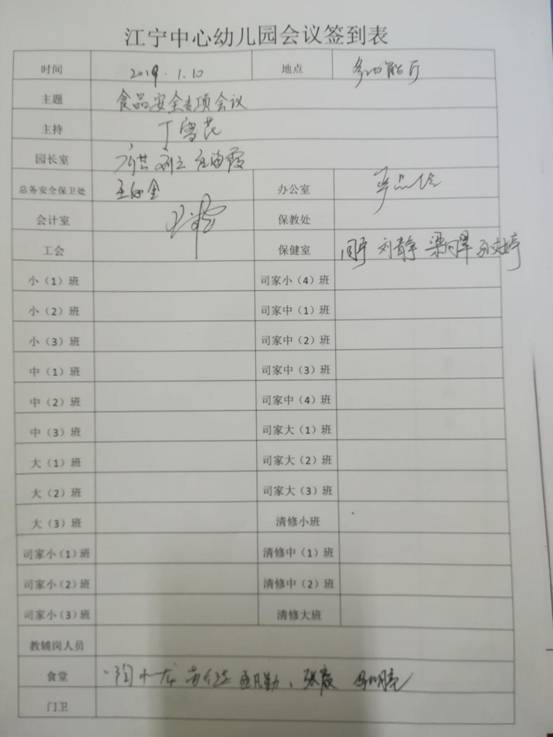 江宁中心幼儿园会议签到表
时间 2019.1.10 地点 多功能厅
主题 食品安全专项会议
主持 丁雪花
园长室
总务安全保卫处 办公室
会计室 保教处
工会 保健室 刘静
小（1）班 司家小（4）班
小（2）班 司家中（1）班
小（3）班 司家中（2）班
中（1）班 司家中（3）班
中（2）班 司家中（4）班
中（3）班 司家大（1）班
大（1）班 司家大（2）班
大（2）班 司家大（3）班
大（3）班 清修小班
司家小（1）班 清修中（1）班
司家小（2）班 清修中（2）班
司家小（3）班 清修大班
教辅岗人员
食堂
门卫